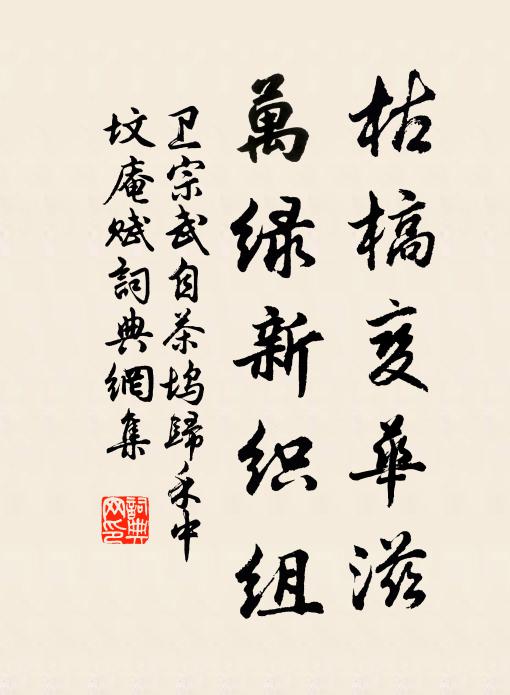 枯槁变華滋
萬绿新织组
卫宗武自茶坞歸禾中
坟庵赋詞典網集
詞典
网印